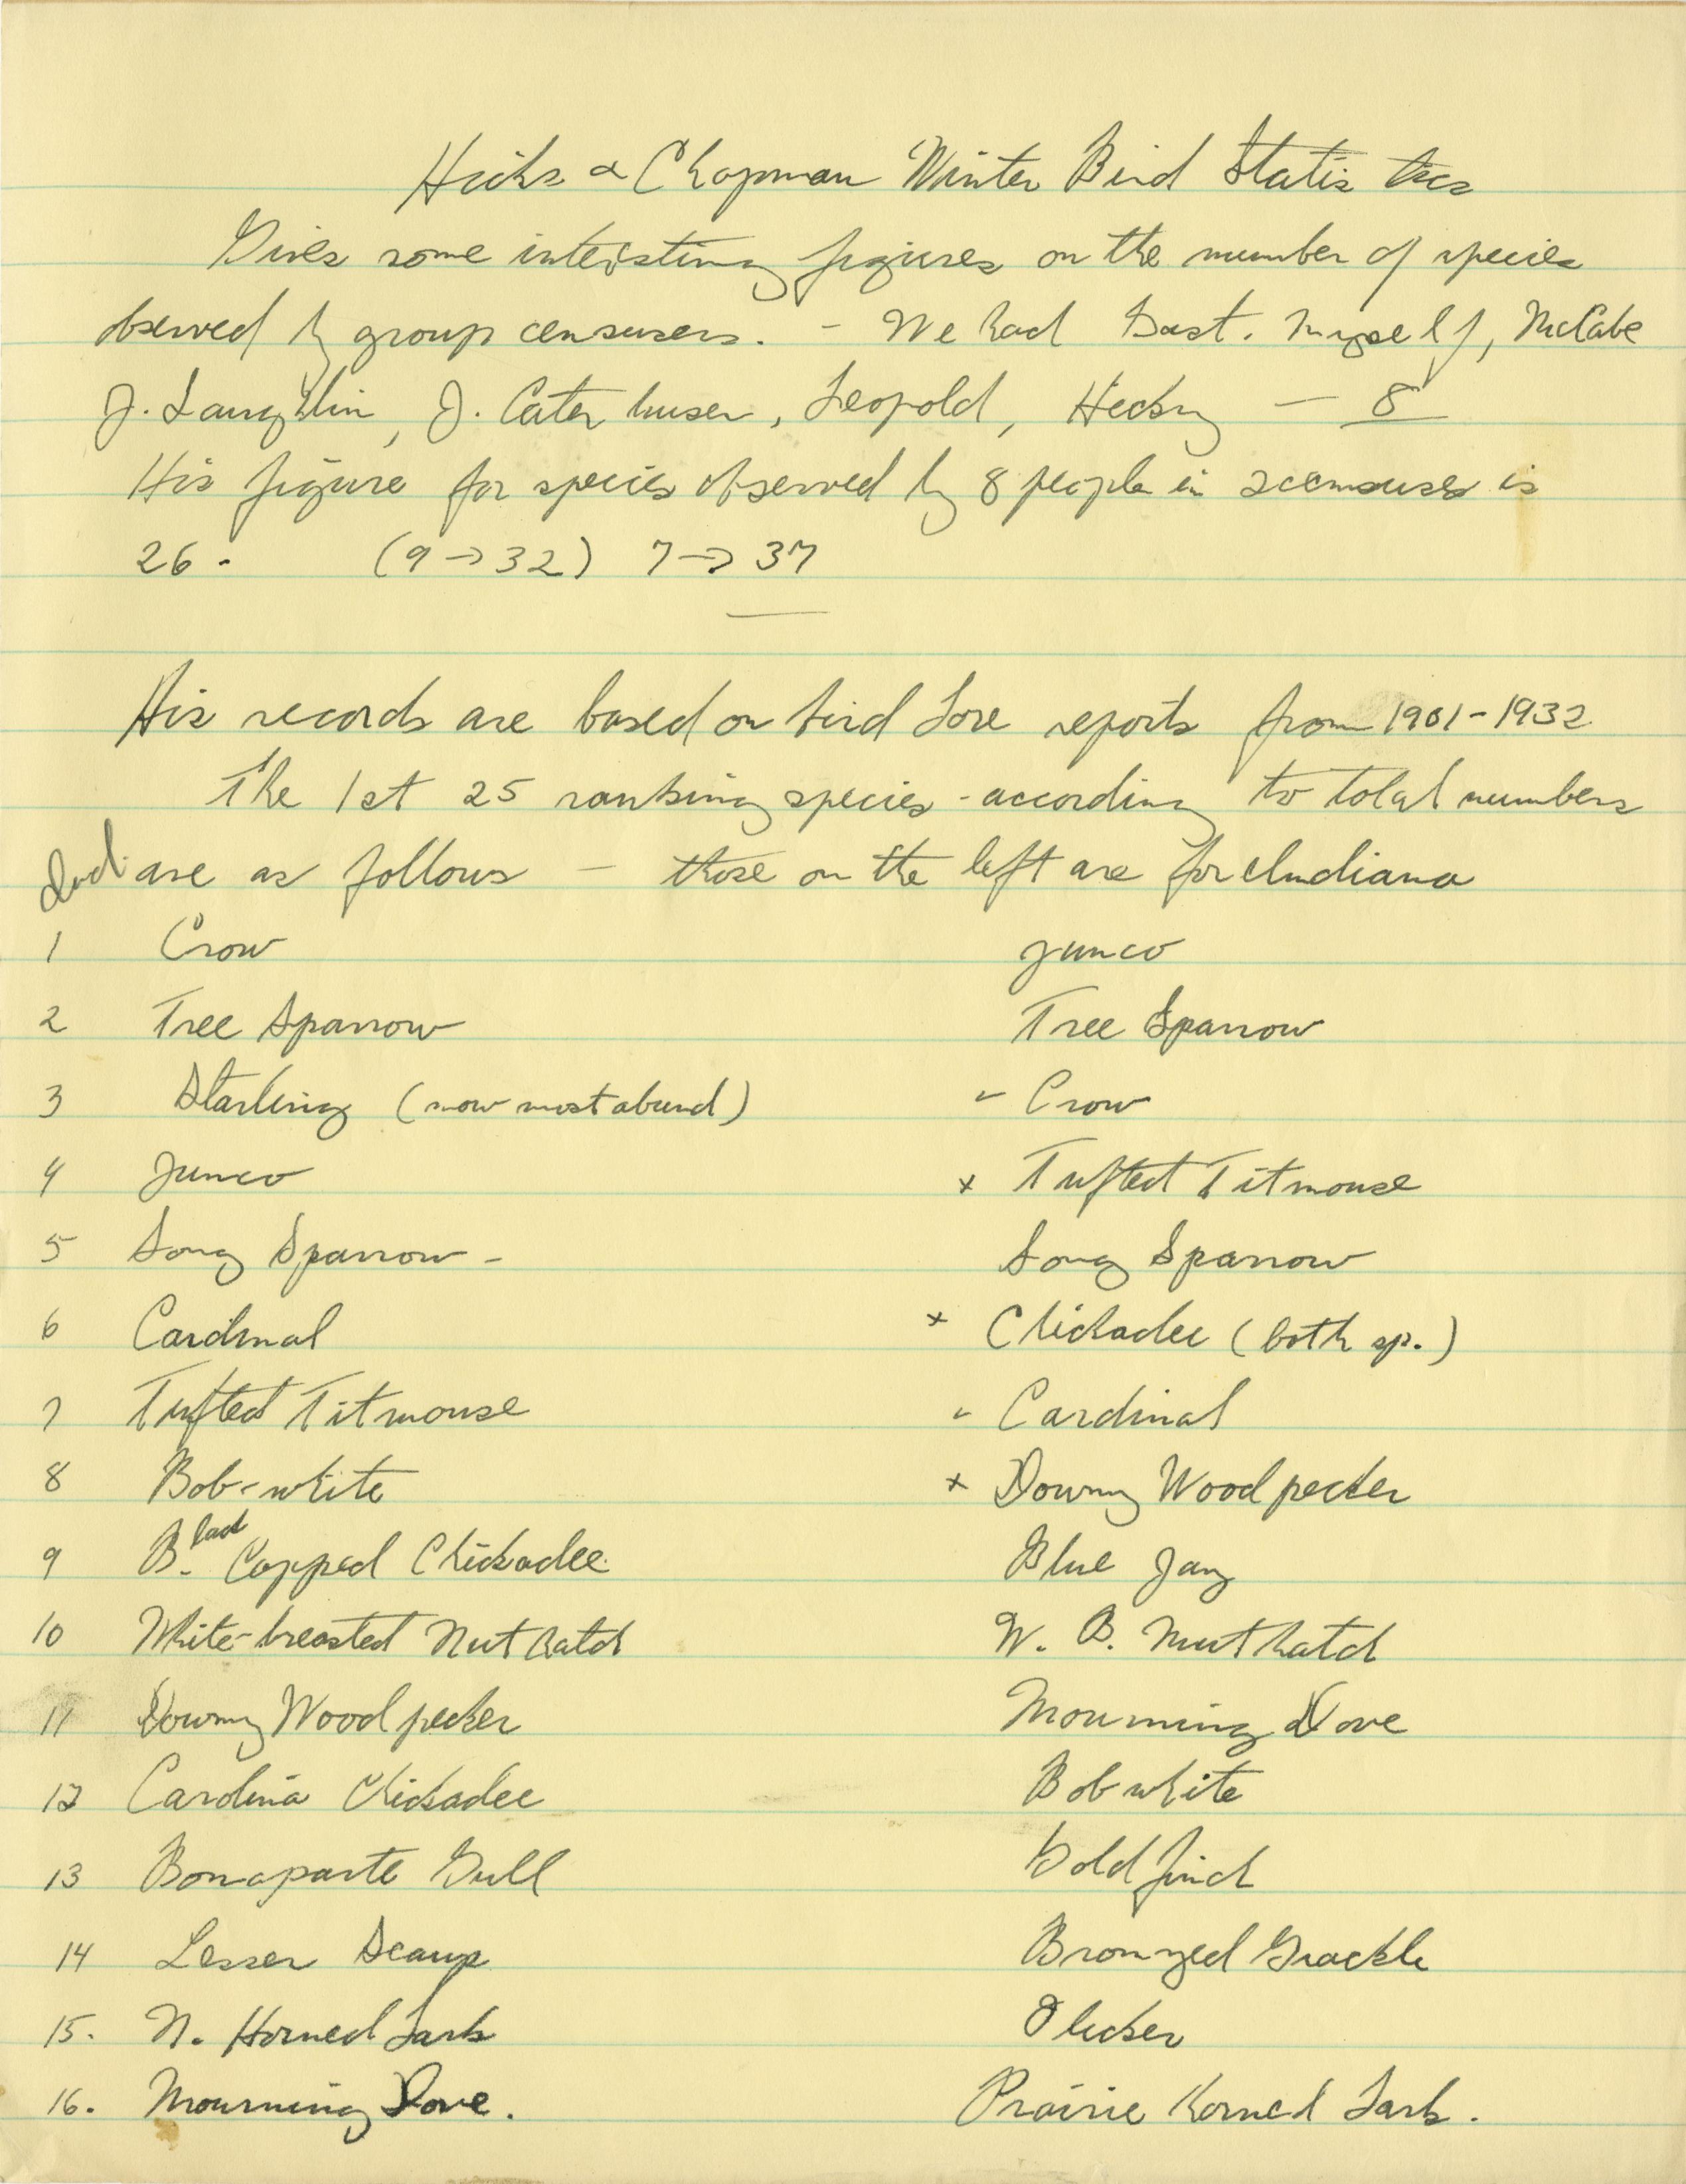 Hicks & Chapman Winter Bird Statistics
Gives some interesting figures on the number of species
observed by group censusers. - We had Gast. Myself, McCabe
J. Laughlin, J. Catenhusen, Leopold, Hickey — 8
His figure for species observed by 8 people in censuses is
26. (9→32) 7→37
His records are based on bird Lore reports from 1901-1932
The 1st 25 ranking species - according to total numbers
are as follows — those on the left are for Indiana
1 Crow Junco
2 Tree Sparrow Tree Sparrow
3 Starling (now most abund) - Crow
4 Junco x Tufted Titmouse
5 Song Sparrow - Song Sparrow
6 Cardinal x Chickadee (both sp.)
7 Tufted Titmouse - Cardinal
8 Bob-white x Downy Woodpecker
9 Black Capped Chickadee Blue Jay
10 White-breasted Nuthatch W. B. Nuthatch
11 Downy Woodpecker Mourning Dove
12 Carolina Chickadee Bobwhite
13 Bonaparte Gull Goldfinch
14 Lesser Scaup Bronzed Grackle
15. N. Horned Lark Flicker
16. Mourning Dove. Prairie Horned Lark.